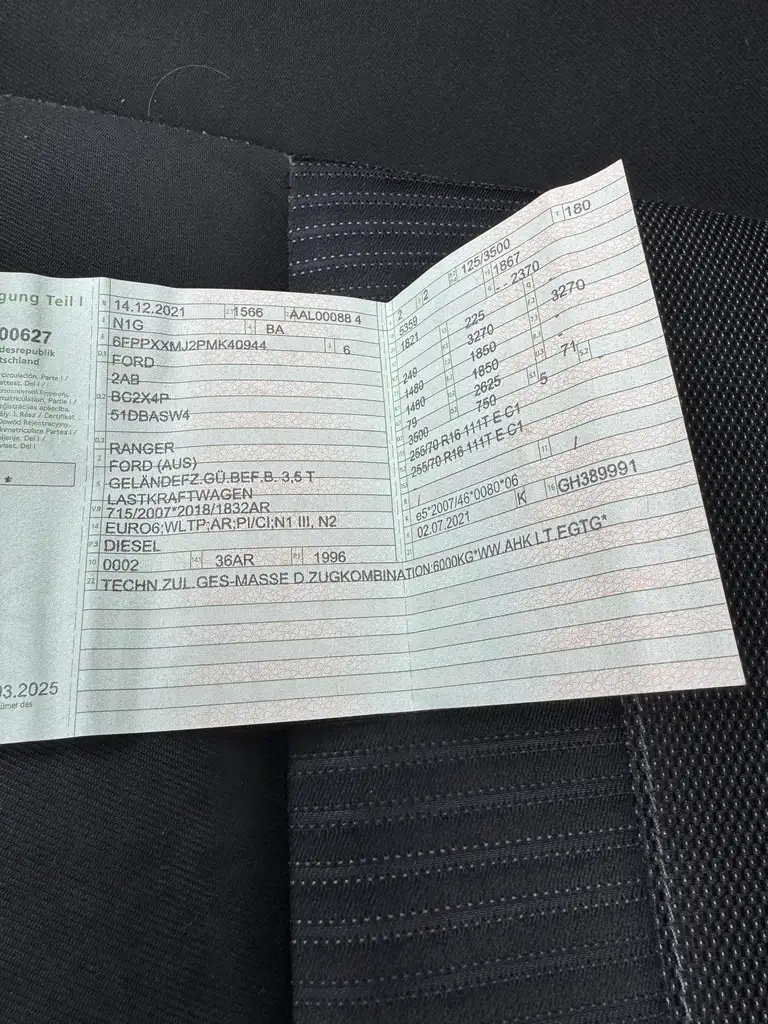 gung Teil I
00627
desrepublik
tschland
03.2025
14.12.2021 1566 AAL00088 4
N1G BA
6FPPXXMJ2PMK40944 6
FORD
2AB
BC2X4P
51DBASW4
RANGER
FORD (AUS)
GELÄNDEFZ.GÜ.BEF.B. 3,5 T
LASTKRAFTWAGEN
715/2007*2018/1832AR
EURO6;WLTP;AR;PI/CI;N1 III, N2
DIESEL
0002 36AR 1996
TECHN.ZUL.GES-MASSE D.ZUGKOMBINATION:6000KG*WW.AHK LT.EGTG*
2 2 125/3500 180
5359 1867
1821 - - 2370
225
240 3270 3270
1480 1850 -
1480 1850 -
79 2625 71 -
3500 750 5
255/70 R16 111T E C1
255/70 R16 111T E C1
/ /
e5*2007/46*0080*06
02.07.2021 K GH389991